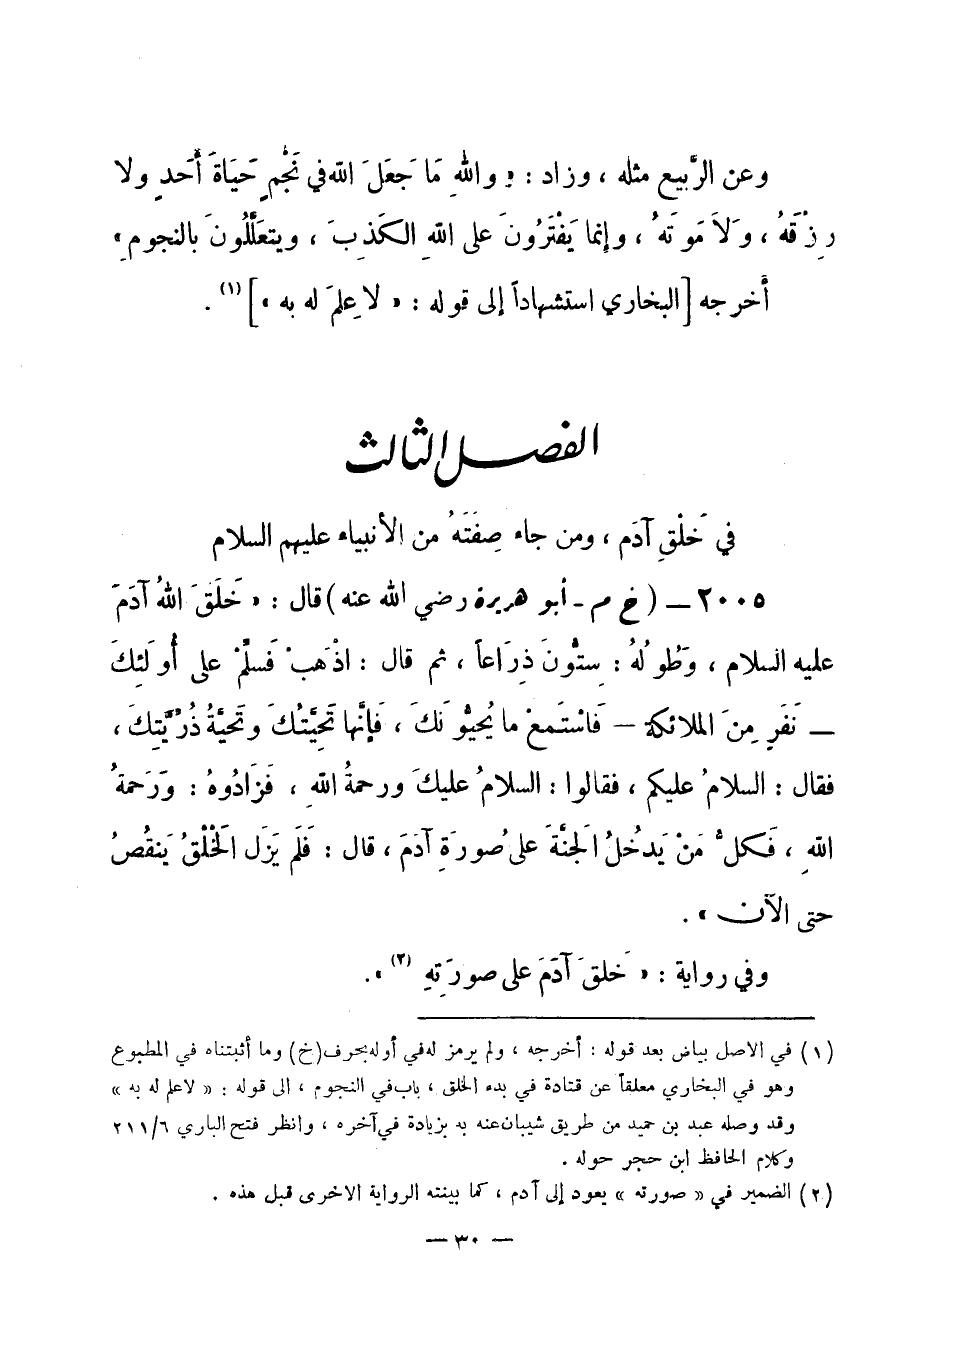 وعن الرَّبيع مثله ، وزاد : « واللهِ مَا جَعَلَ اللّه في نَجْمٍ حَيَاةَ أَحدٍ ولا
رِزْقَهُ ، وَلاَ مَوتَهُ ، وإنما يَفْتَرُونَ على اللهِ الكَذِبَ ، ويتعَلَّلُونَ بالنجومِ »
أخرجه [البخاري استشهاداً إلى قوله : « لا عِلمَ له به »](١) .
الفصل الثالث
في خَلْقِ آدَم ، ومن جاء صِفَتَهُ من الأنبياء عليهم السلام
٢٠٠٥ – (خ م - أبو هريرة رضي الله عنه) قال : « خَلَقَ اللهُ آدَمَ
عليه السلام ، وَطُولُهُ : سِتُّونَ ذِرَاعاً ، ثم قال : اذْهَبْ فَسلِّمْ على أُولَئِكَ
– نَفَرٍ مِنَ الملائكة – فَاسْتَمعْ ما يُحيُّونَكَ ، فَإِنَّها تَحِيَّتُكَ وتَحيَّةُ ذُرِّيَّتِكَ ،
فقال : السلامُ عليكم ، فقالوا : السلامُ عليكَ ورحمةُ اللهِ ، فَزَادُوهُ : وَرَحمةُ
اللهِ ، فَكلُّ مَنْ يَدخُلُ الجنَّةَ على صُورَةِ آدَمَ ، قال : فَلَم يَزَل الخَلْقُ يَنقُصُ
حتى الآن » .
وفي رواية : « خَلقَ آدَمَ على صورَتِهِ (٢) » .
(١) في الاصل بياض بعد قوله : أخرجه ، ولم يرمز له في أوله بحرف (خ) وما أثبتناه في المطبوع
وهو في البخاري معلقاً عن قتادة في بدء الخلق ، باب في النجوم ، الى قوله : « لا علم له به »
وقد وصله عبد بن حميد من طريق شيبان عنه به بزيادة في آخره ، وانظر فتح الباري ٢١١/٦
وكلام الحافظ ابن حجر حوله .
(٢) الضمير في « صورته » يعود إلى آدم ، كما بينته الرواية الاخرى قبل هذه .
– ٣٠ –